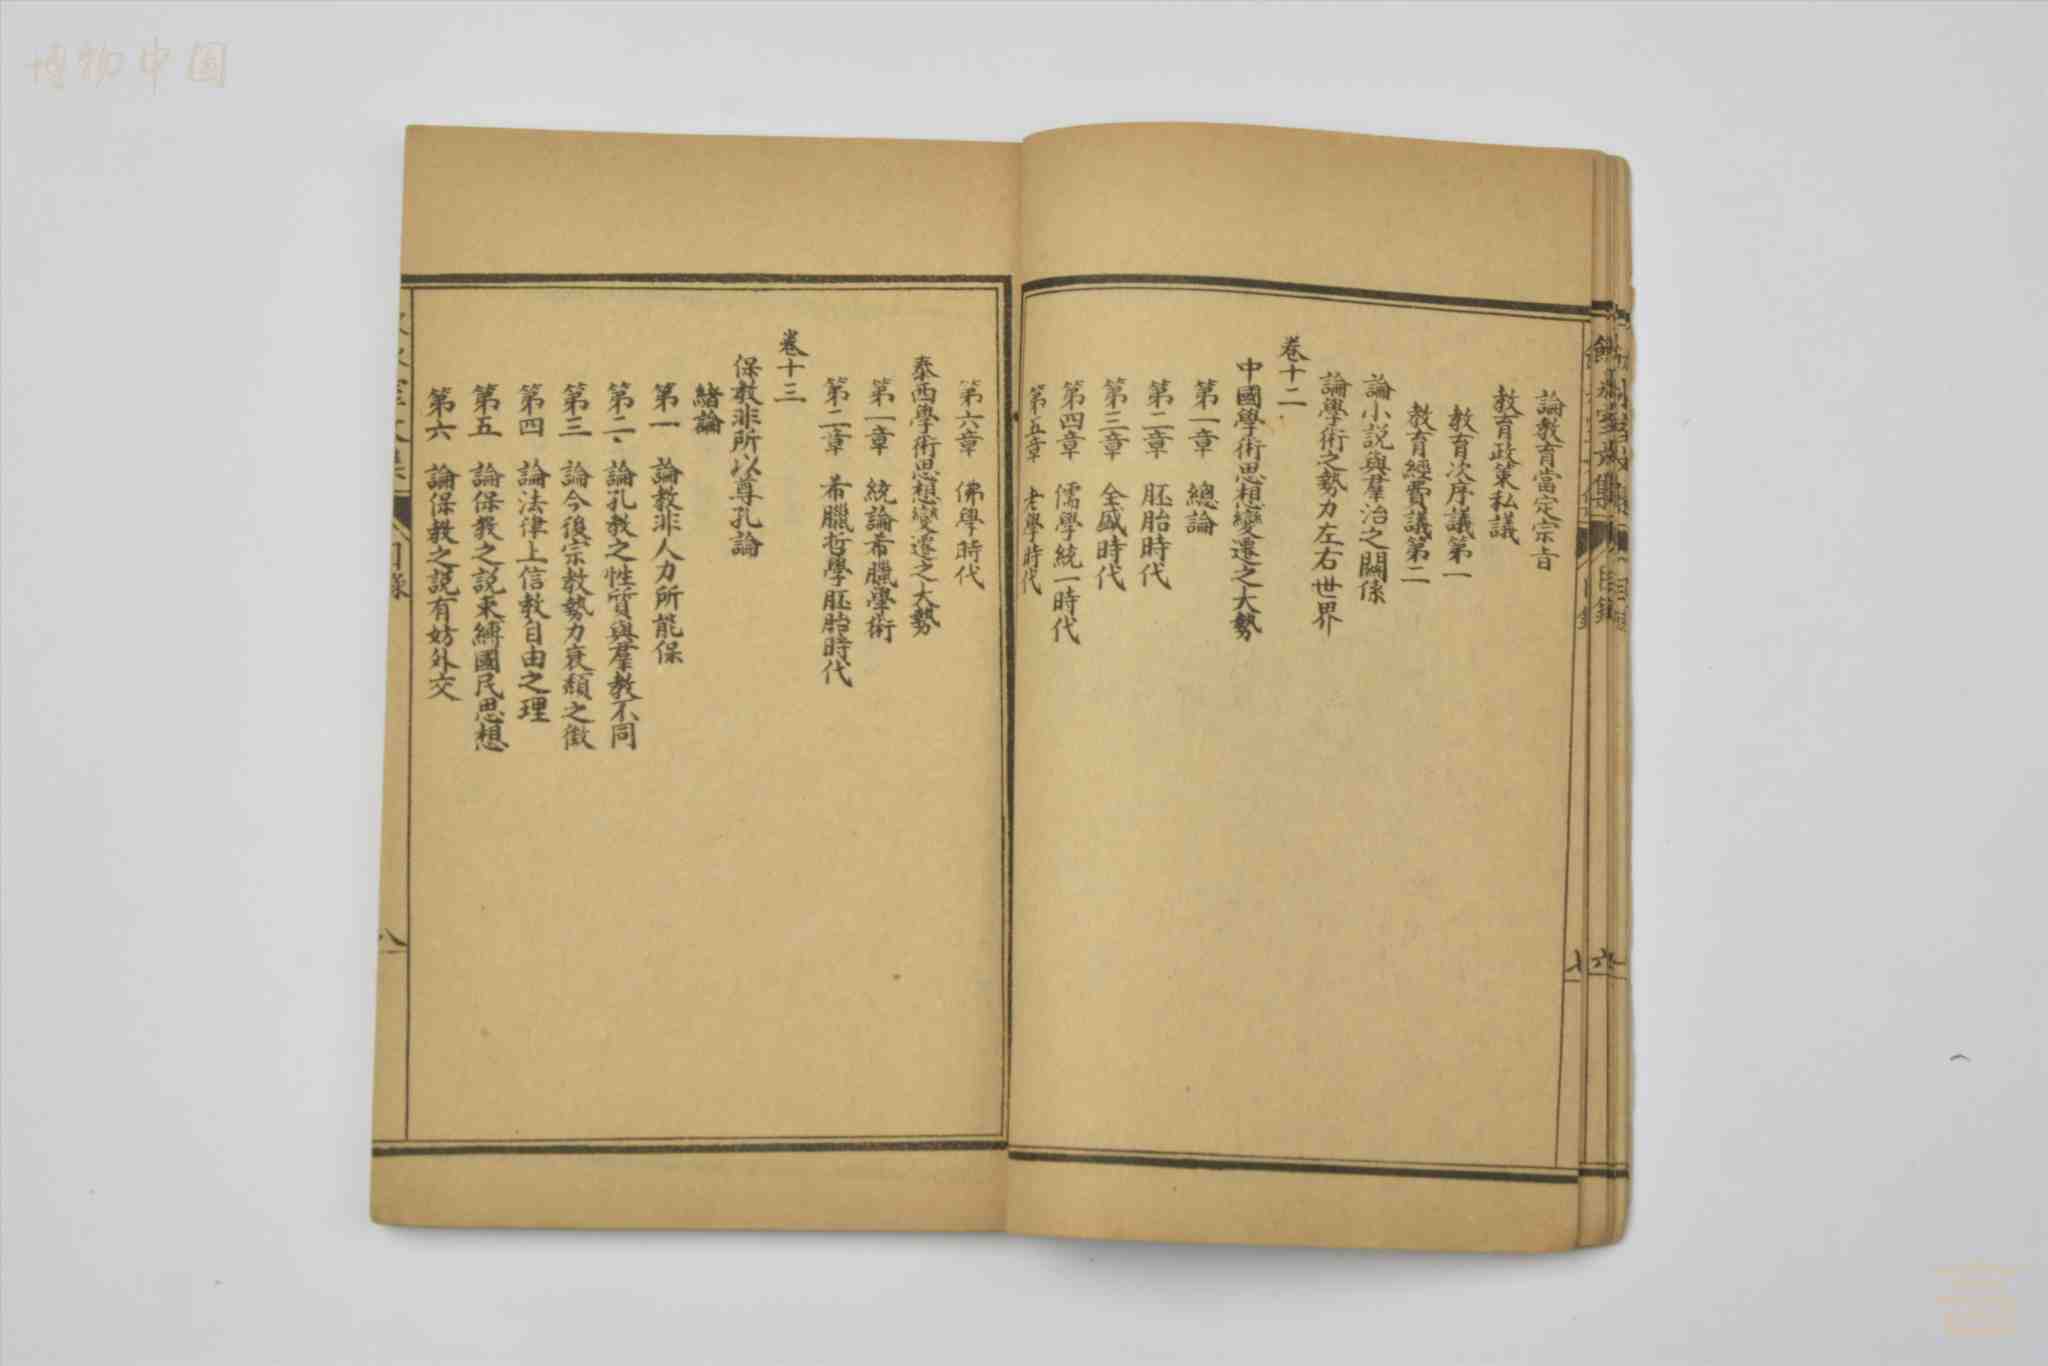 博物中国
論教育當定宗旨
教育政策私議
教育次序議第一
教育經費議第二
論小説與羣治之關係
論學術之勢力左右世界
卷十二
中國學術思想變遷之大勢
第一章 總論
第二章 胚胎時代
第三章 全盛時代
第四章 儒學統一時代
第五章 老學時代
第六章 佛學時代
泰西學術思想變遷之大勢
第一章 統論希臘學術
第二章 希臘哲學胚胎時代
卷十三
保教非所以尊孔論
緒論
第一 論教非人力所能保
第二、論孔教之性質與羣教不同
第三 論今後宗教勢力衰頹之徵
第四 論法律上信教自由之理
第五 論保教之説束縛國民思想
第六 論保教之説有妨外交
目錄
八